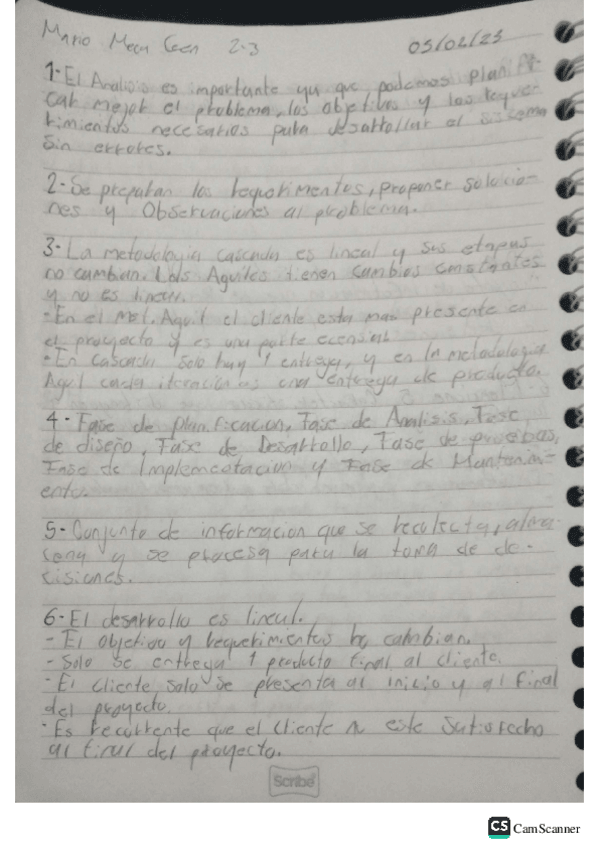 Mario Mecn Ceen 2-3 05/02/25
1-El Analisis es importante ya que podemos planifi
car mejor el problema, los objetivos y los requer
rimientos necesarios para desarrollar el sistema
sin errores.
2-Se preparan los requerimentos, proponer solucio-
nes y Observaciones al problema.
3-La metodologia cascada es lineal y sus etapas
no cambian. Las Agiles tienen cambios constantes
y no es lineal.
-En el Met. Agil el cliente esta mas presente en
el proyecto y es una parte ecensial
-En Cascada solo hay 1 entrega, y en la metodologia
Agil cada iteracion es una entrega de producto.
4-Fase de planificacion, Fase de Analisis, Fase
de diseño, Fase de Desarrollo, Fase de pruebas,
Fase de Implementacion y Fase de Mantenimi-
ento.
5-Conjunto de informacion que se recolecta, alma-
cena y se procesa para la toma de de-
cisiones.
6-El desarrollo es lineal.
-El objetivo y requerimientos no cambian.
-Solo se entrega 1 producto final al cliente.
-El cliente solo se presenta al inicio y al final
del proyecto.
-Es recurrente que el cliente no este satisfecho
al final del proyecto.
Scribe
CS CamScanner